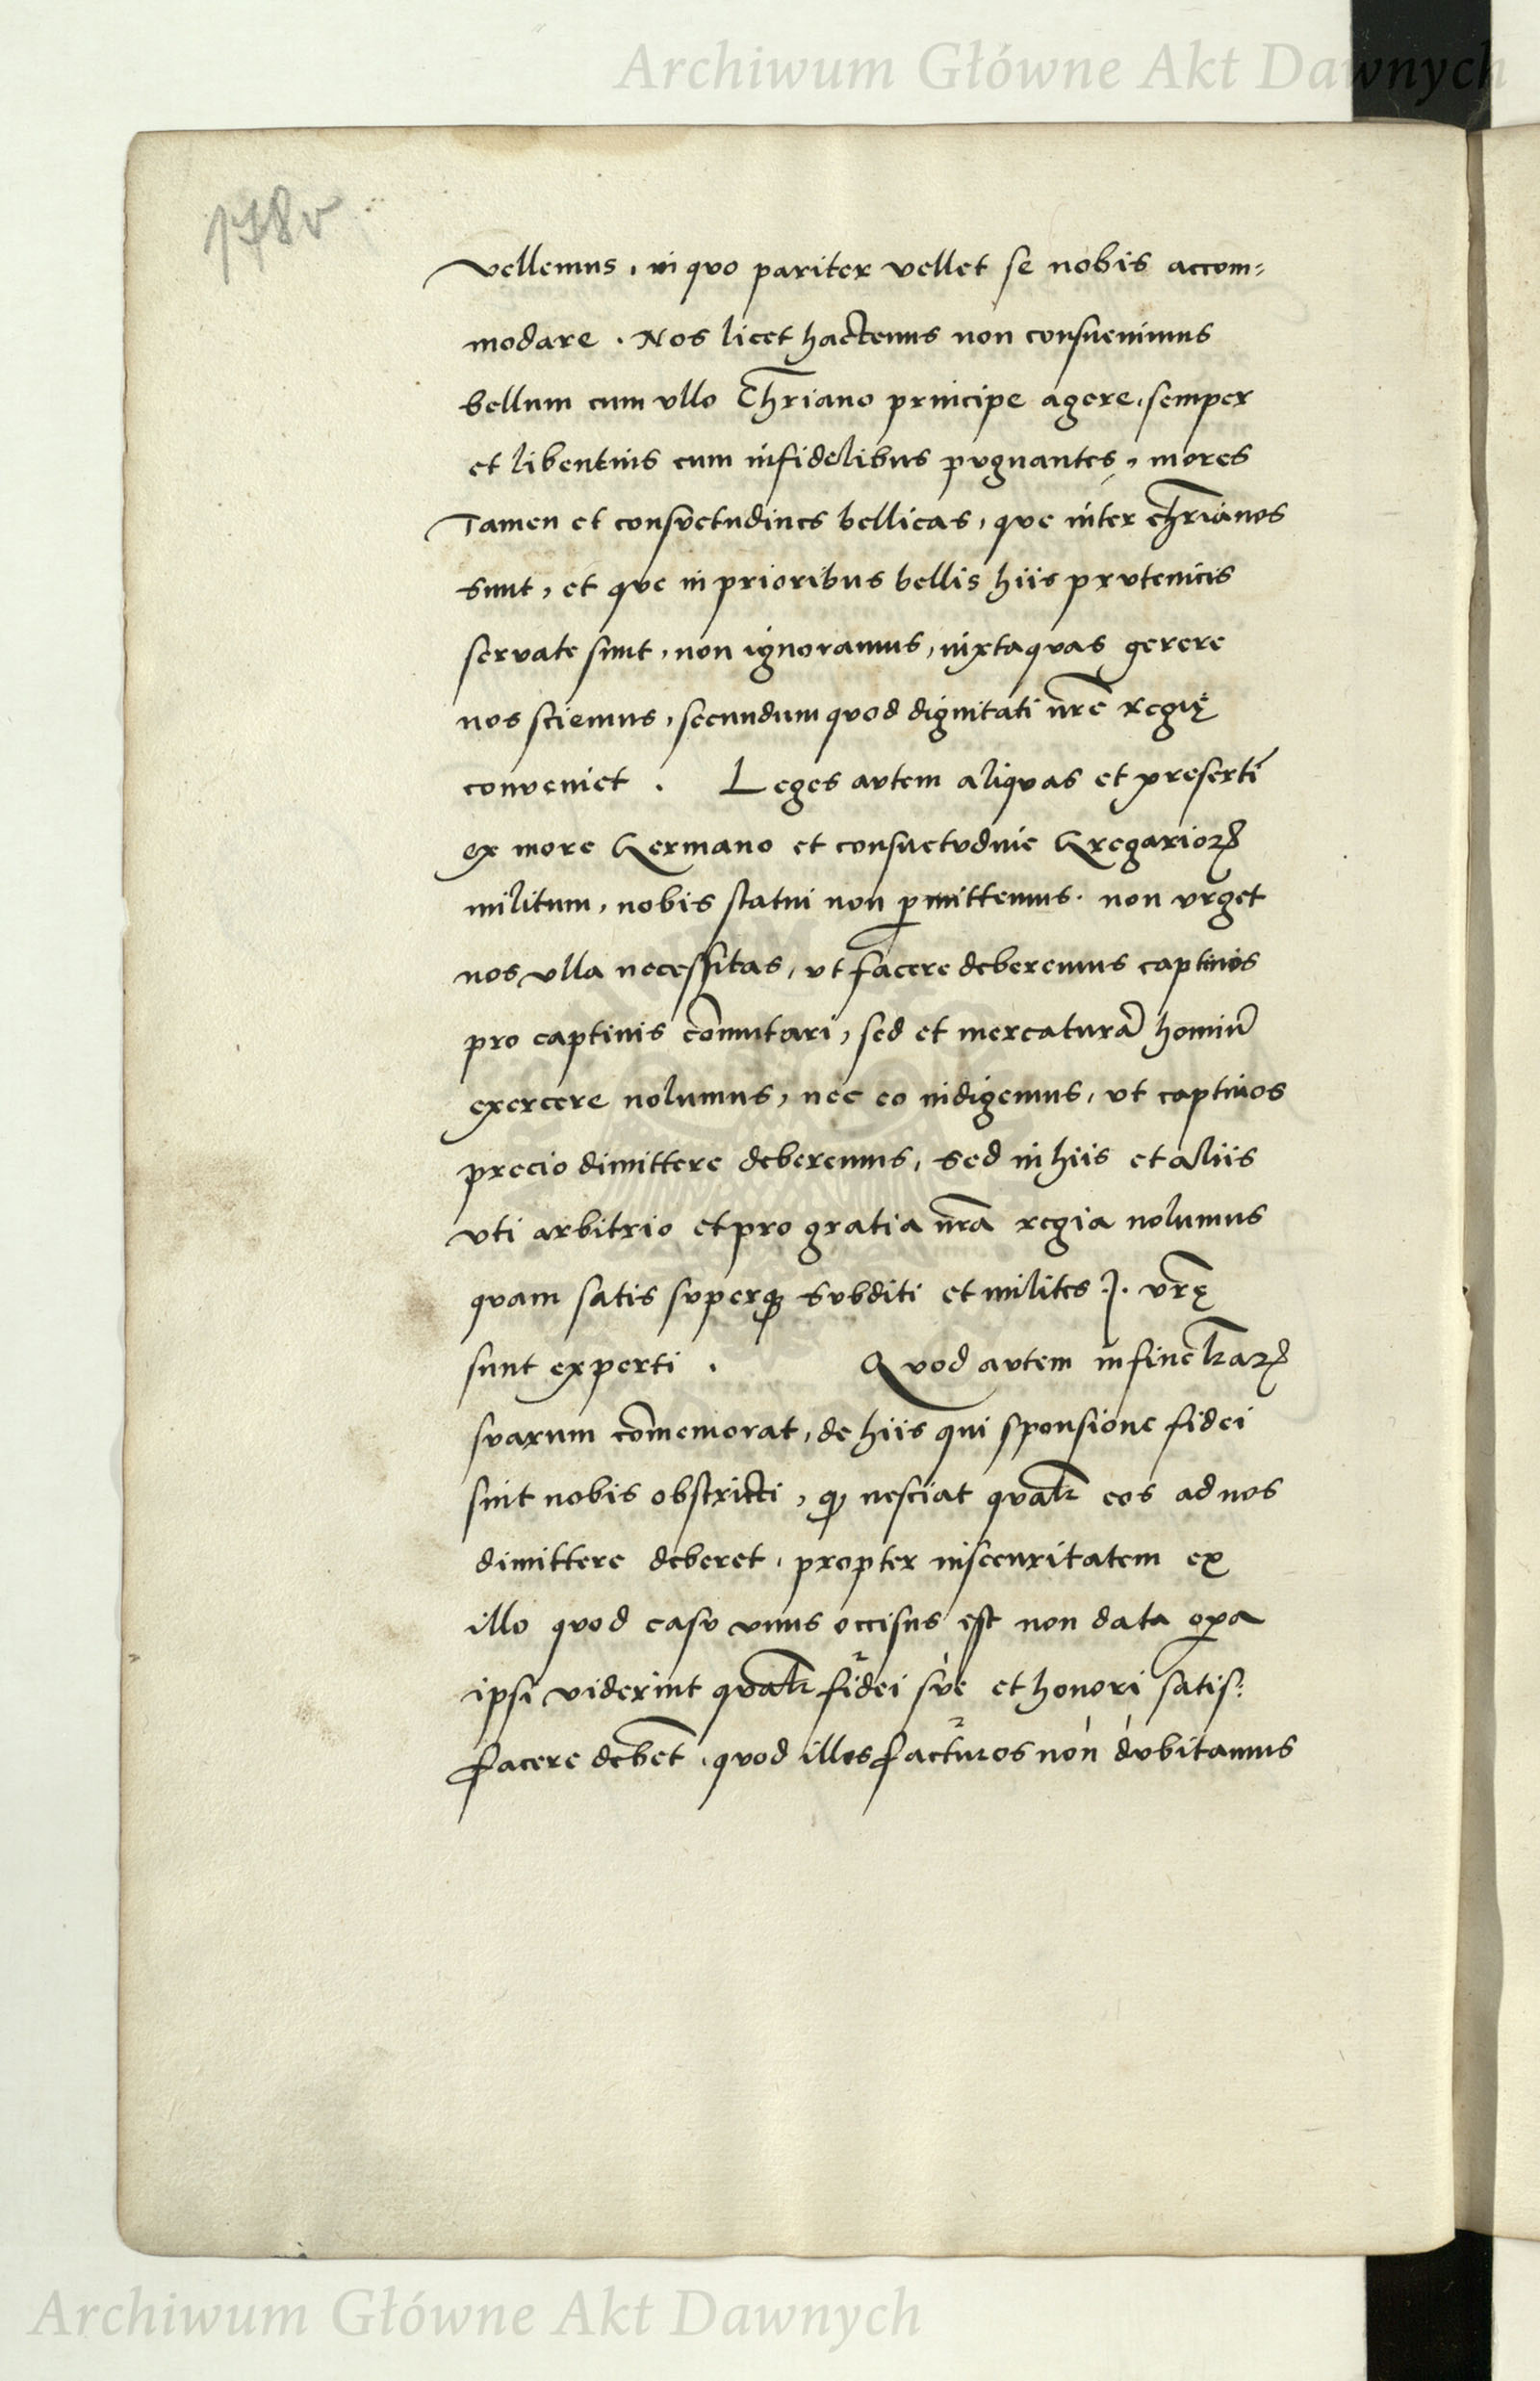 Archiwum Główne Akt Dawnych
178v
vellemus, in quo pariter vellet se nobis accom=
modare. Nos licet hactenus non consuevimus
bellum cum ullo Chr̃iano principe agere, semper
et libentius cum infidelibus pugnantes, mores
Tamen et consvetudines bellicas, que inter chr̃ianos
sunt, et que in prioribus bellis hiis prutenicis
servate sunt, non ignoramus, iuxta quas gerere
nos sciemus, secundum quod dignitati nr̃e Regię
conveniet. Leges autem aliquas et presertĩ
ex more Germano et consuetudine Gregarioꝝ
militum, nobis statui non ꝑmittemus. non urget
nos ulla necessitas, ut facere deberemus captivos
pro captivis com̃utari, sed et mercaturã hominũ
exercere nolumus, nec eo indigemus, ut captivos
precio dimittere deberemus, sed in hiis et aliis
uti arbitrio et pro gratia nr̃a regia nolumus
quam satis superqꝫ subditi et milites J. vr̃ę
sunt experti. Quod autem in fine lr̃aꝝ
suarum com̃emorat, de hiis qui sponsione fidei
sint nobis obstricti, qꝫ nesciat qualr̃ eos ad nos
dimittere deberet, propter insecuritatem ex
illo quod casu unus occisus est non data oꝑa
ipsi viderint qualr̃ fidei sue et honori satis:
facere deben̄t, quod illos facturos non dubitamus
Archiwum Główne Akt Dawnych